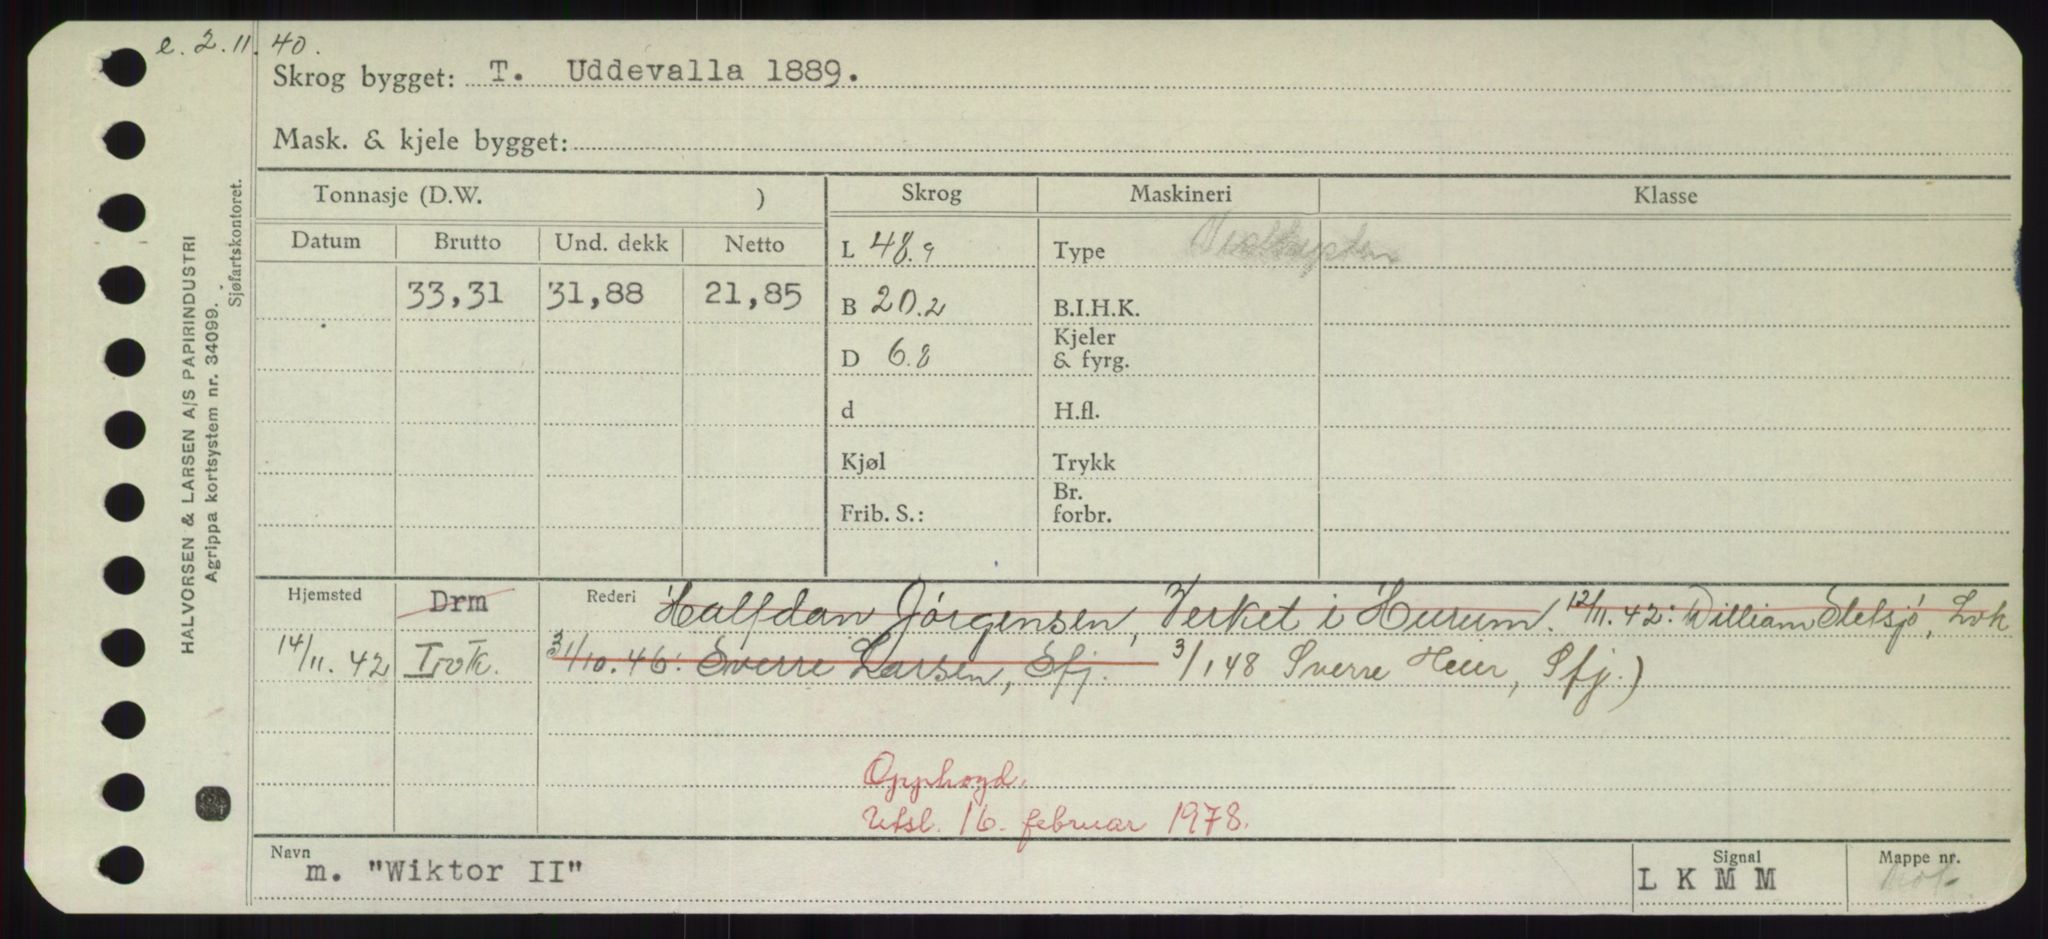 e. 2.11.40.
Skrog bygget: T. Uddevalla 1889.
Mask. & kjele bygget:
HALVORSEN & LARSEN A/S PAPIRINDUSTRI
Agrippa kortsystem nr. 34099.
Sjøfartskontoret.
Tonnasje (D.W. ) Skrog Maskineri Klasse
Datum Brutto Und. dekk Netto
L 48.9 Type
33,31 31,88 21,85
B 20.2 B.I.H.K.
D 6.8 Kjeler & fyrg.
d H.fl.
Kjøl Trykk
Frib. S.: Br. forbr.
Hjemsted Drm Rederi Halfdan Jörgensen, Verket i Hurum. 12/11.42: William Sletsjö, Lvk
14/11.42 31/10.46: Sverre Larsen, Sfj. 3/1 48 Sverre Heier, Sfj.)
Opphogd.
Utsl. 16. februar 1978.
Navn m. "Wiktor II"
Signal L K M M
Mappe nr.